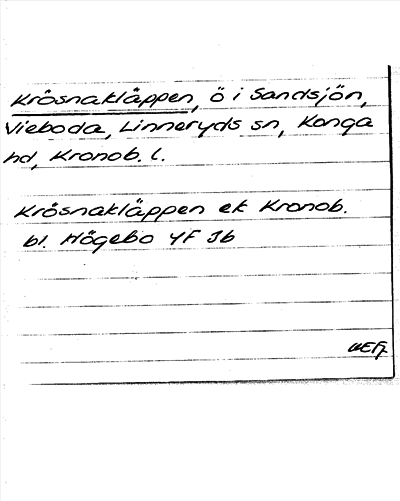 Krösnakläppen, ö i Sandsjön,
Vieboda, Linneryds sn, Konga
hd, Kronob. l.
Krösnakläppen ek Kronob.
bl. Högebo 4F Jb